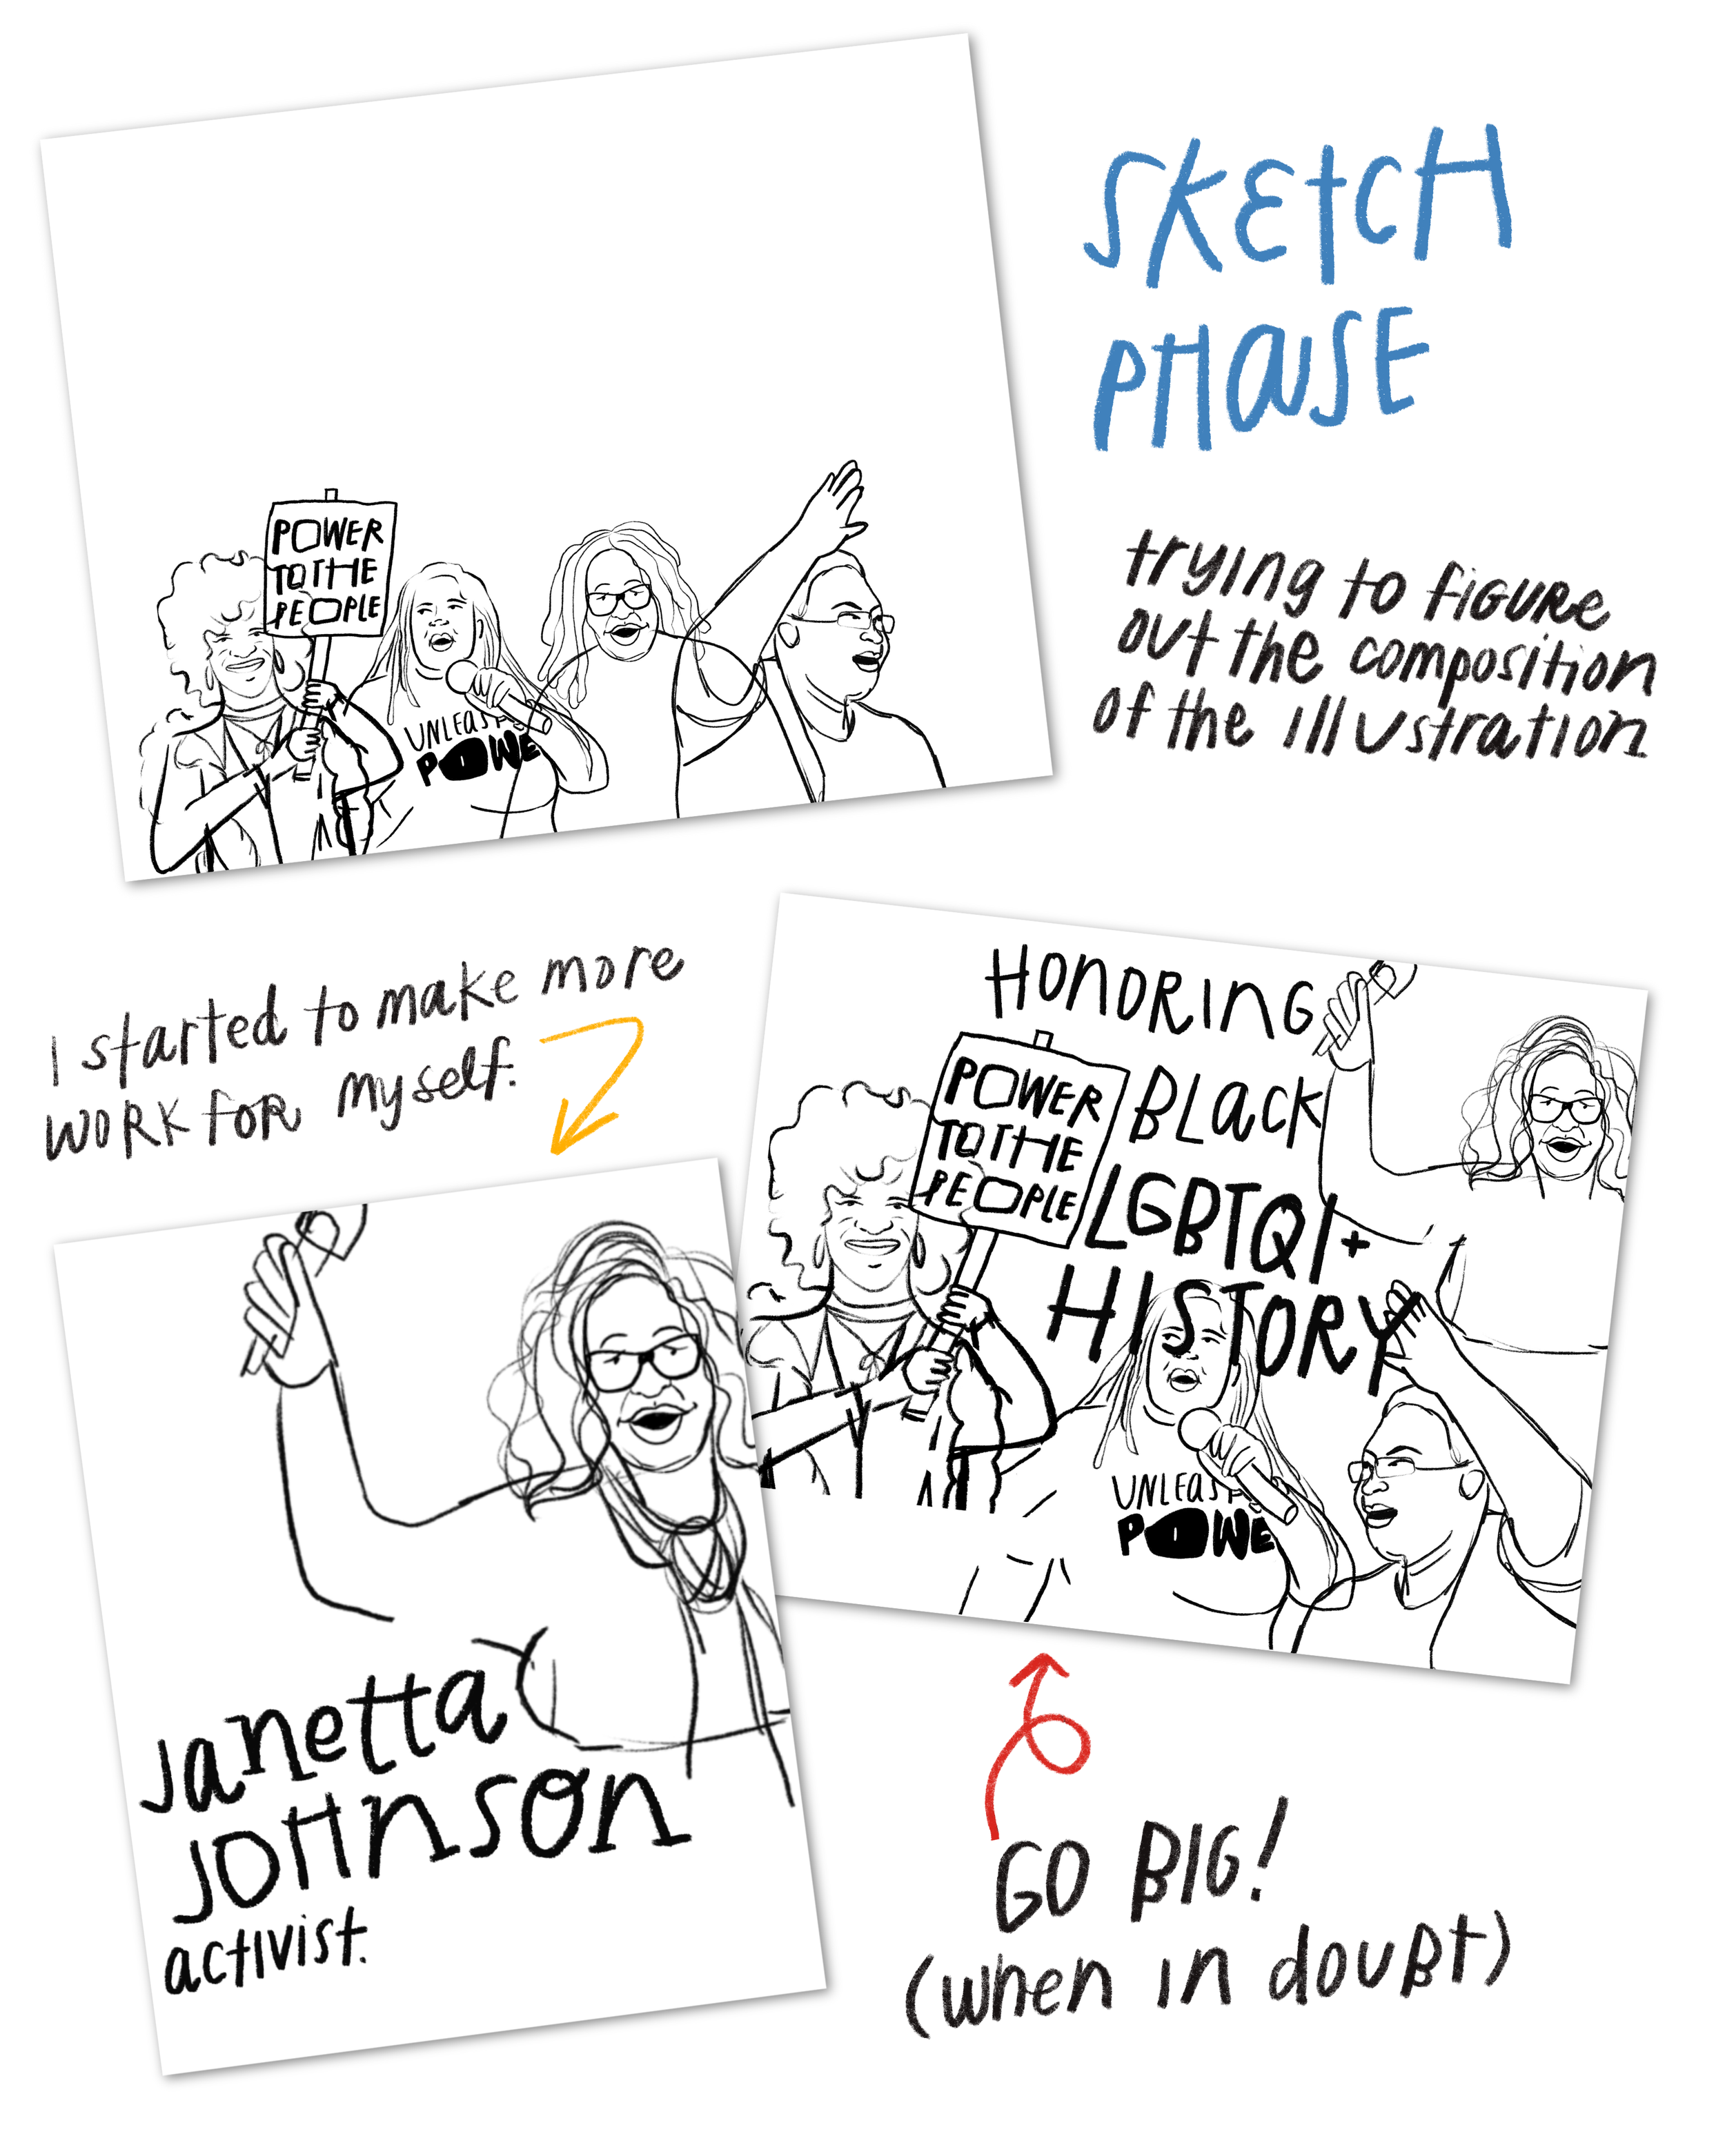 SKETCH
PHASE
trying to figure
out the composition
of the illustration
POWER
TO THE
PEOPLE
UNLEASH
POWE
I started to make more
work for myself.
HONORING
BLACK
LGBTQI+
HISTORY
POWER
TO THE
PEOPLE
UNLEAS
POWE
Janetta
Johnson
activist.
GO BIG!
(when in doubt)